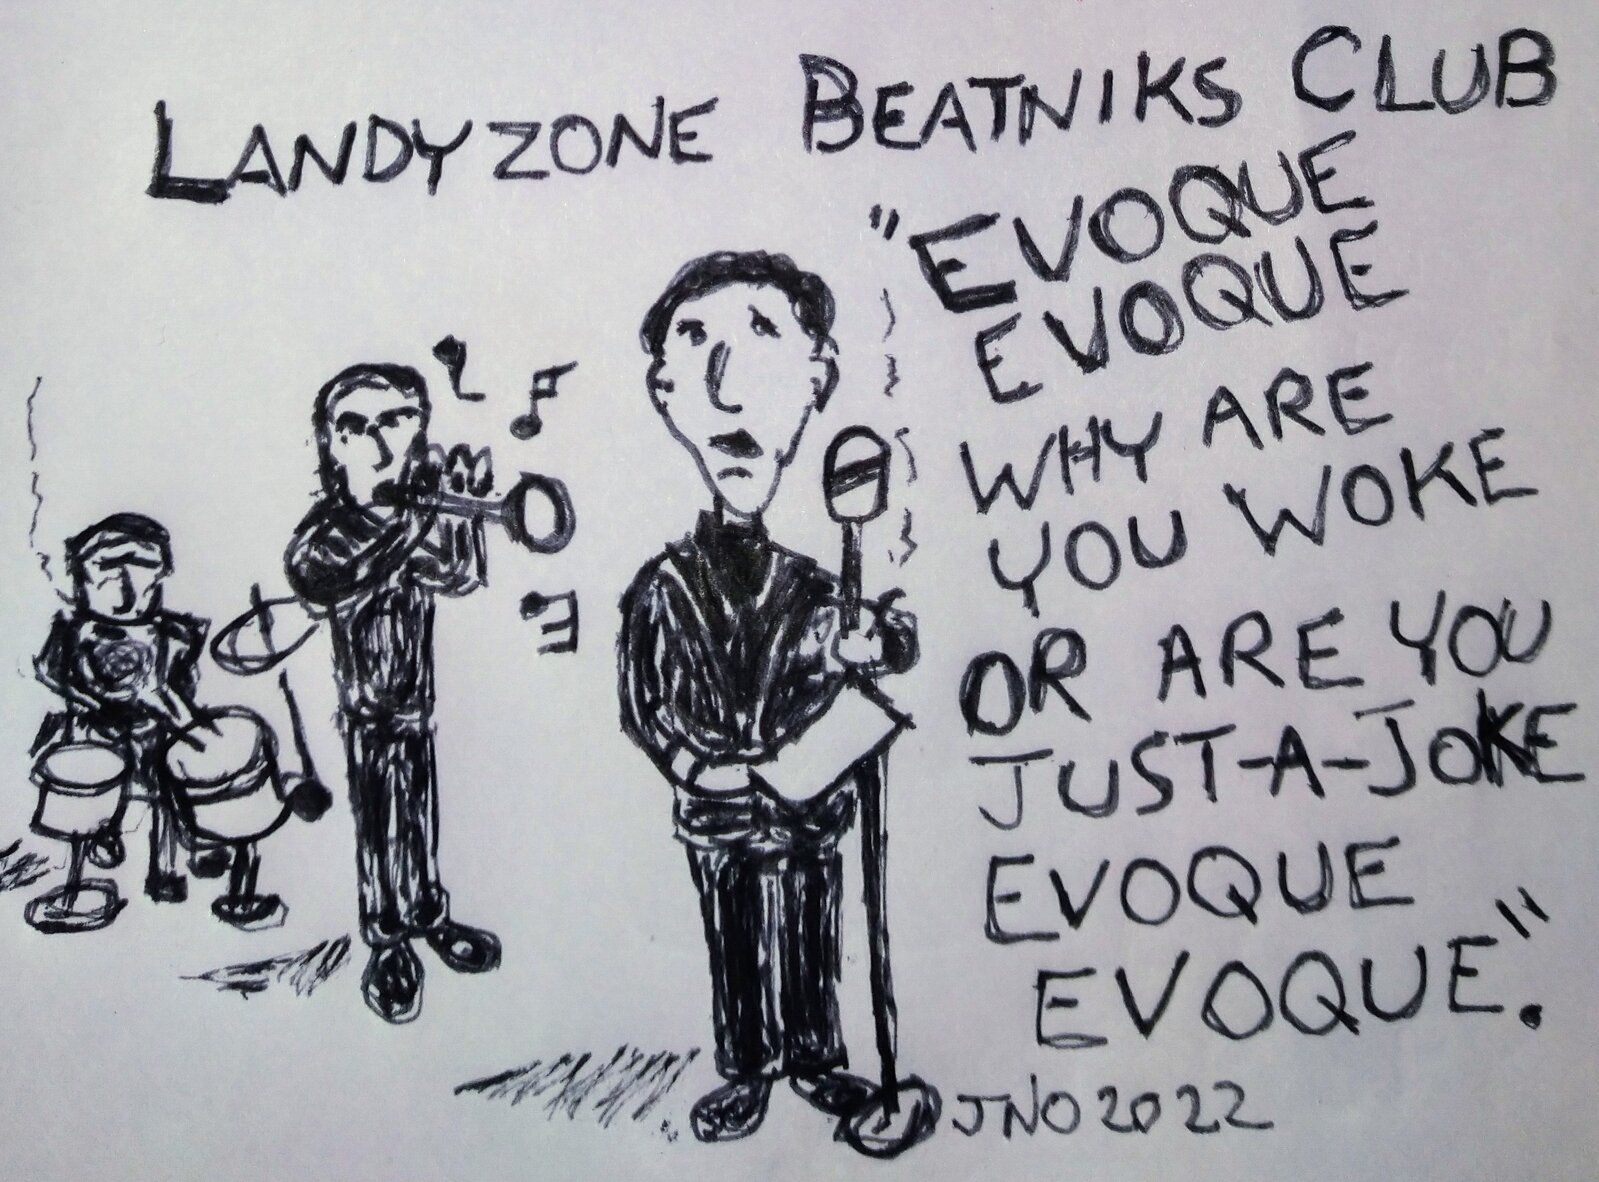 LANDYZONE BEATNIKS CLUB
"EVOQUE
EVOQUE
WHY ARE
YOU WOKE
OR ARE YOU
JUST-A-JOKE
EVOQUE
EVOQUE".
JNO 2022